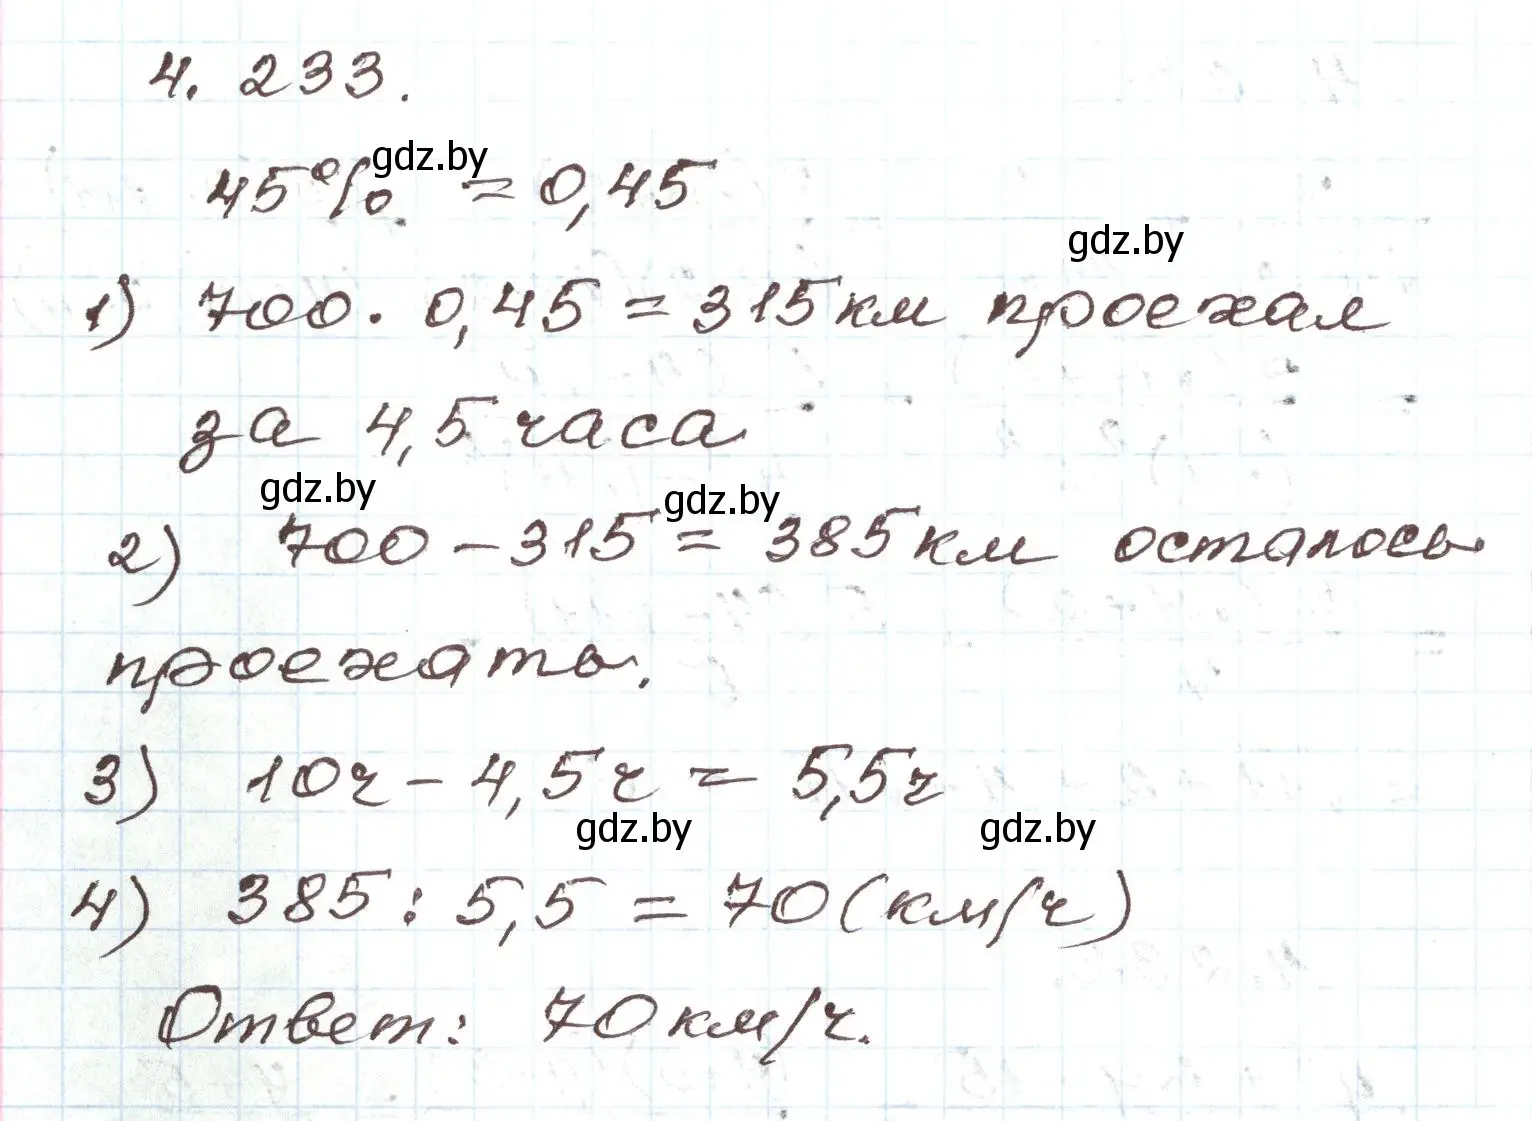 4.233.
45% gdz.by = 0,45
gdz.by
1) 700 · 0,45 = 315 км проехал
за 4,5 часа
gdz.by gdz.by
2) 700 − 315 = 385 км осталось
проехать.
3) 10 ч − 4,5 ч = 5,5 ч
gdz.by gdz.by
4) 385 : 5,5 = 70 (км/ч)
Ответ: 70 км/ч.